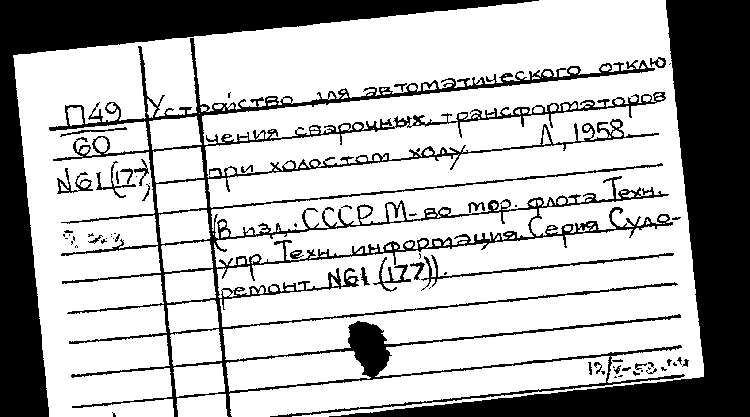 П49 Устройство для автоматического отклю
60 чения сварочных трансформаторов
N61 (177) при холостом ходу. Л., 1958.
(В изд.: СССР. М-во мор. флота. Техн.
упр. Техн. информация. Серия Судо-
ремонт. N61 (177)).
12/V-53